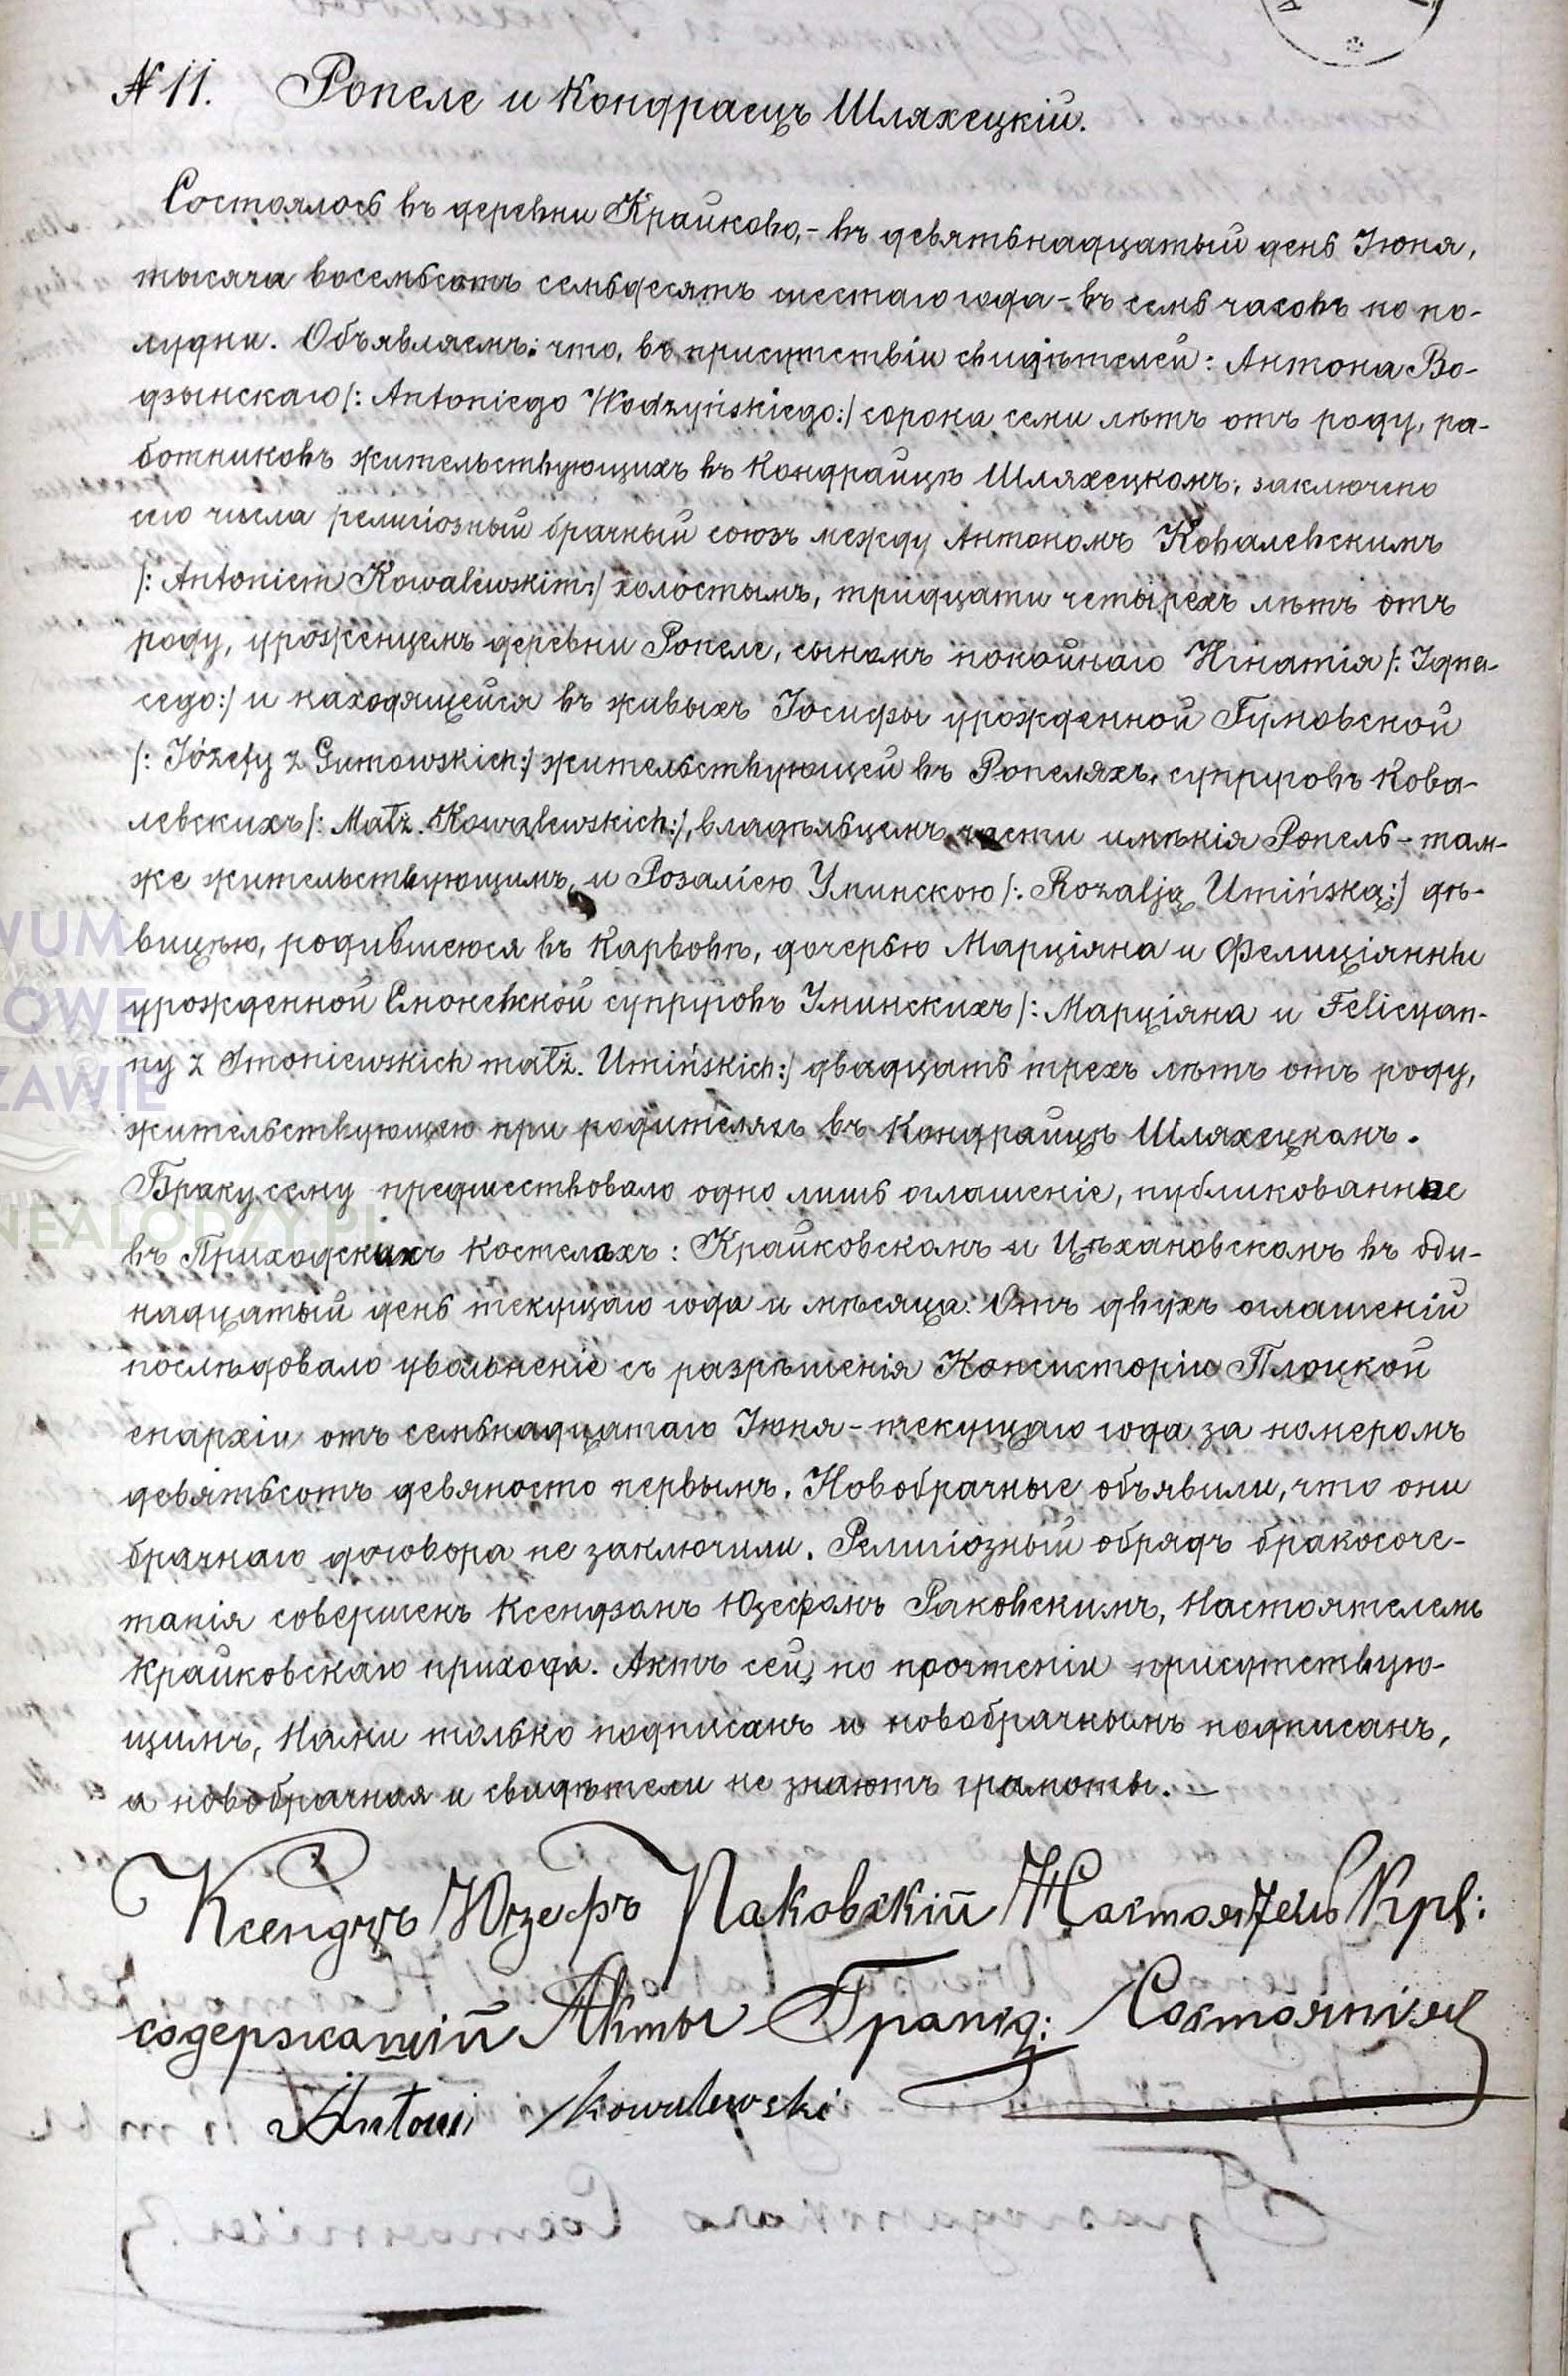 № 11. Ропеле и Кондраецъ Шляхецкій.
Состоялось въ деревни Крайково,- въ девятьнадцатый день Іюня,
тысяча восемьсотъ семьдесятъ шестаго года - въ семь часовъ по по-
лудни. Объявляемъ: что, въ присутствіи свидѣтелей: Антона Во-
дзынскаго /: Antoniego Wodzyńskiego:/ сорока семи лѣтъ отъ роду, ра-
ботниковъ жительствующихъ въ Кондрайцѣ Шляхецкомъ, заключено
сего числа религіозный брачный союзъ между Антономъ Ковалевскимъ
/: Antoniem Kowalewskim:/ холостымъ, тридцати четырехъ лѣтъ отъ
роду, уроженцемъ деревни Ропеле, сыномъ покойнаго Игнатія /: Igna-
cego:/ и находящейся въ живыхъ Іосифы урожденной Гумовской
/: Józefy z Gumowskich:/ жительствующей въ Ропеляхъ, супруговъ Кова-
левскихъ /: Małż. Kowalewskich:/, владѣльцемъ части имѣнія Ропель - там-
же жительствующимъ, и Розаліею Уминскою /: Rozalją Umińską:/ дѣ-
вицею, родившеюся въ Карвовѣ, дочерью Марціяна и Фелиціянны
урожденной Смоневской супруговъ Уминскихъ /: Марціяна и Felicyan-
ny z Smoniewskich małż. Umińskich:/ двадцать трехъ лѣтъ отъ роду,
жительствующею при родителяхъ въ Кондрайцѣ Шляхецкомъ.
Браку сему предшествовало одно лишь оглашеніе, публикованное
въ Приходскихъ костелахъ: Крайковскомъ и Цѣхановскомъ въ оди-
надцатый день текущаго года и мѣсяца. Отъ двухъ оглашеній
послѣдовало увольненіе съ разрѣшенія Консисторіи Плоцкой
епархіи отъ семьнадцатаго Іюня - текущаго года за номеромъ
девятьсотъ девяносто первымъ. Новобрачные объявили, что они
брачнаго договора не заключили. Религіозный обрядъ бракосоче-
танія совершенъ Ксендзомъ Юзефомъ Раковскимъ, Настоятелемъ
Крайковскаго прихода. Актъ сей, по прочтеніи присутствую-
щимъ, Нами только подписанъ и новобрачнымъ подписанъ,
а новобрачная и свидѣтели не знаютъ грамоты. -
Ксендзъ Юзефъ Раковскій Настоятель Крв:
содержащій Акты Гражд: Состоянія
Antoni Kowalewski
WUM
OWE
ZAWIE
NEALODZY.PL